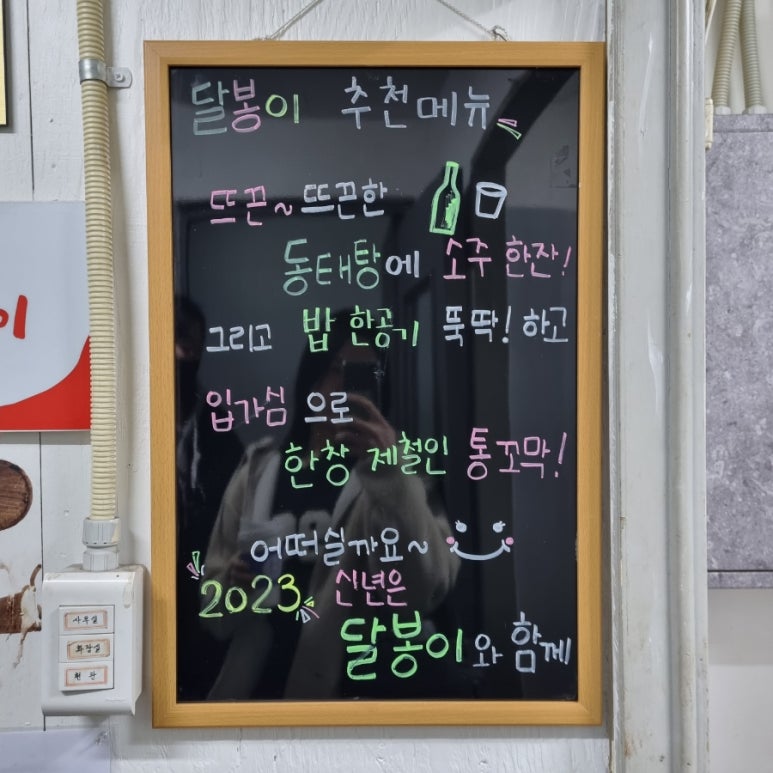 달봉이 추천메뉴
뜨끈~뜨끈한
동태탕에 소주 한잔!
그리고 밥 한공기 뚝딱! 하고
입가심 으로
한창 제철인 통꼬막!
어떠실까요~
2023 신년은
달봉이와 함께
이
사무실
화장실
현관